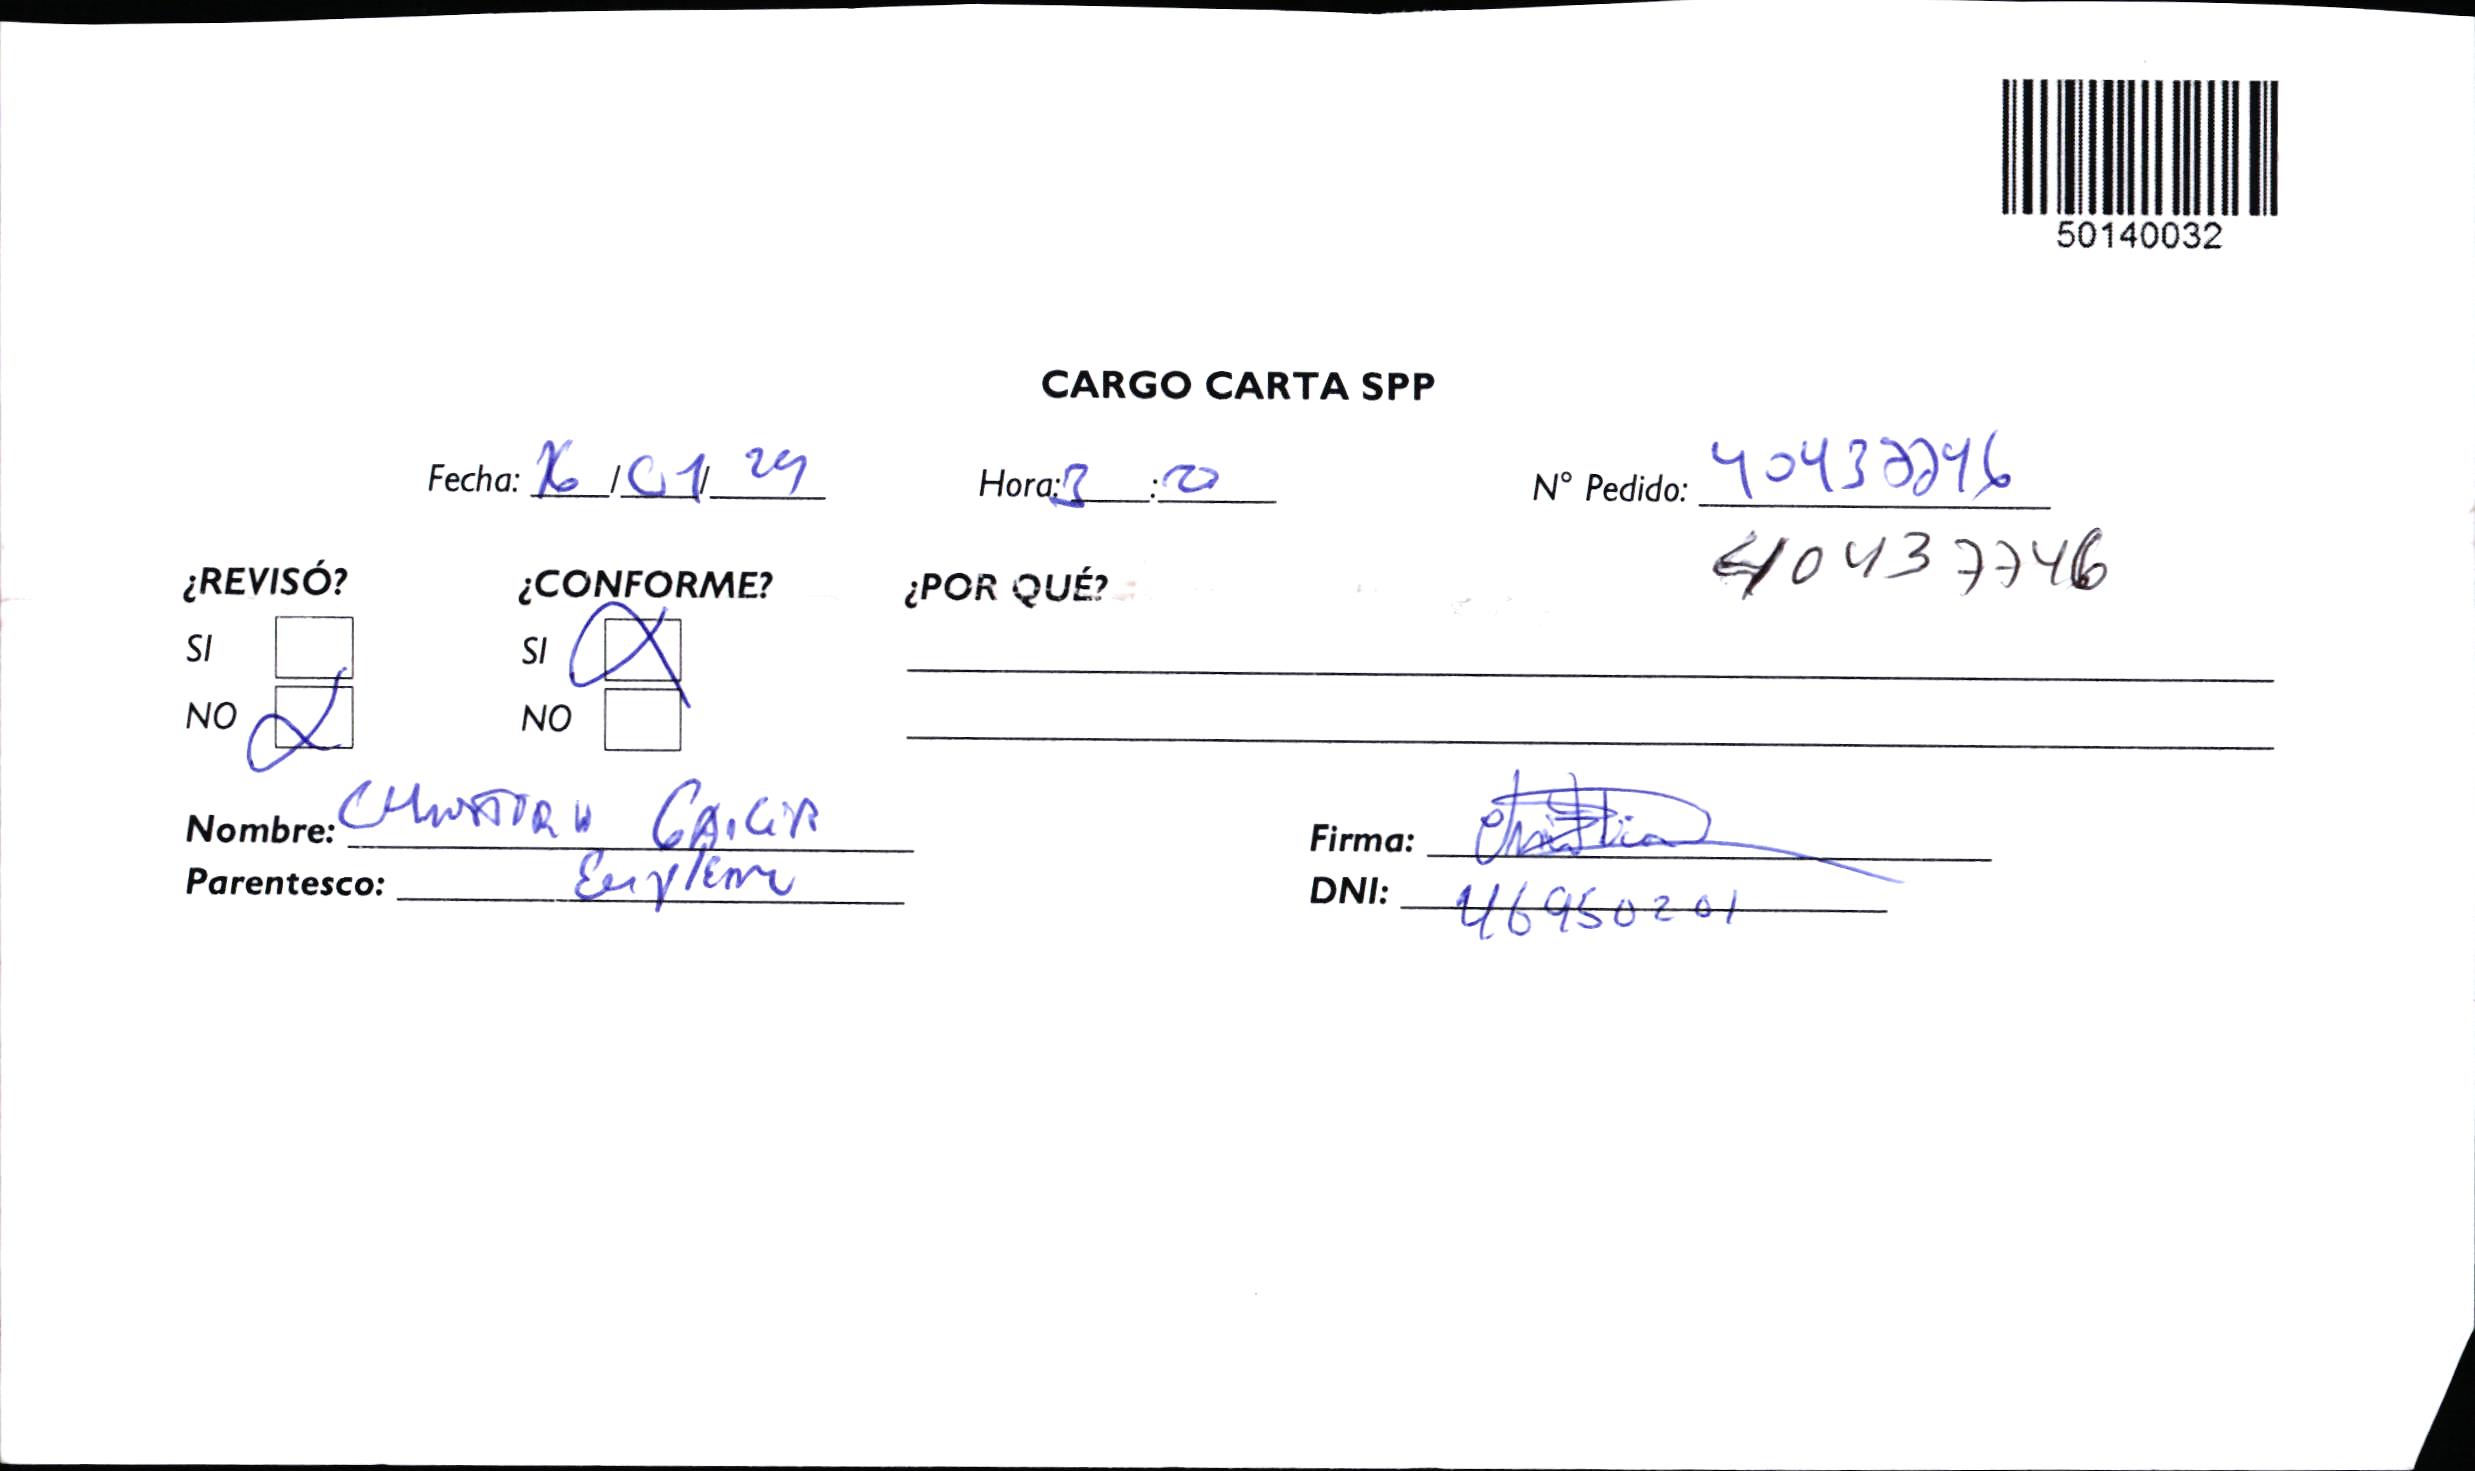 50140032
CARGO CARTA SPP
Fecha: 16/01/24 Hora: 3:20 N° Pedido: 40437746
40437746
¿REVISÓ? ¿CONFORME? ¿POR QUÉ?
SI SI
NO NO
Nombre: Garcia Firma:
Parentesco: DNI: 46950201